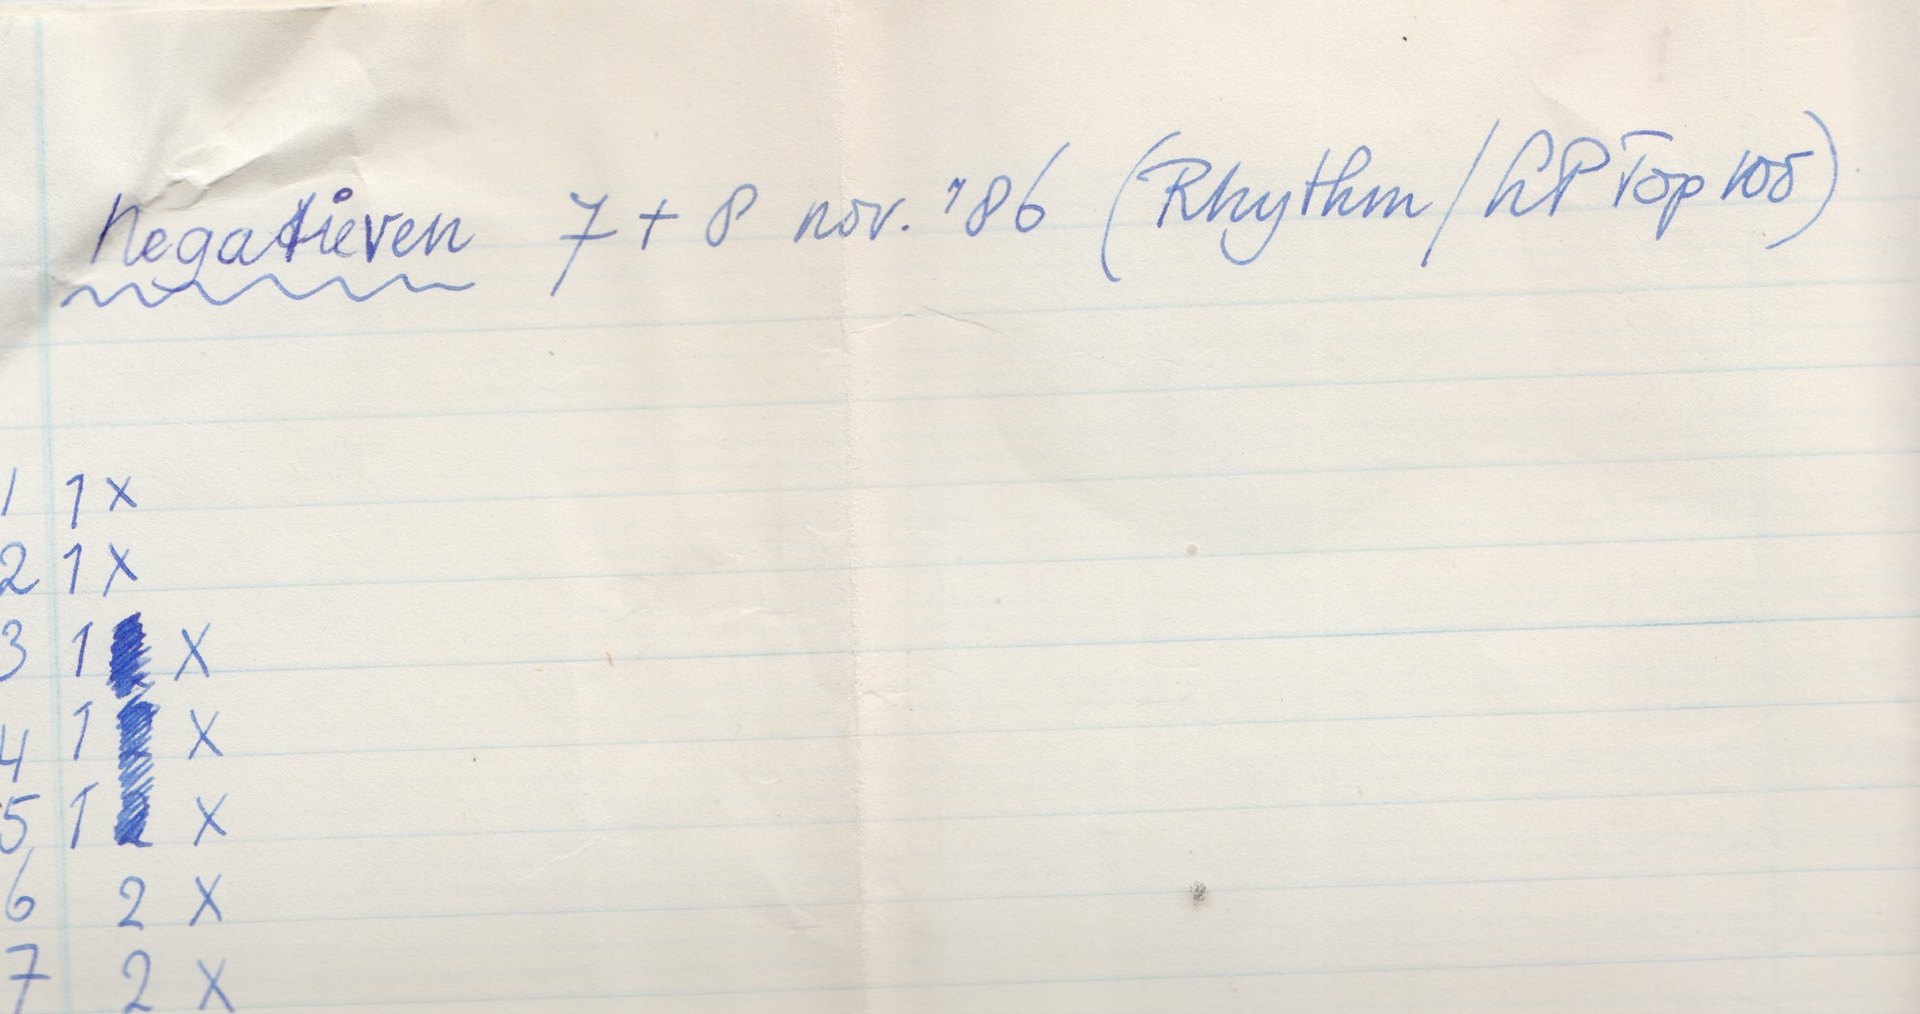 Negatieven 7 + 8 nov. '86 (Rhythm / LP Top 100)
1 1 x
2 1 x
3 1 x
4 1 x
5 1 x
6 2 x
7 2 x